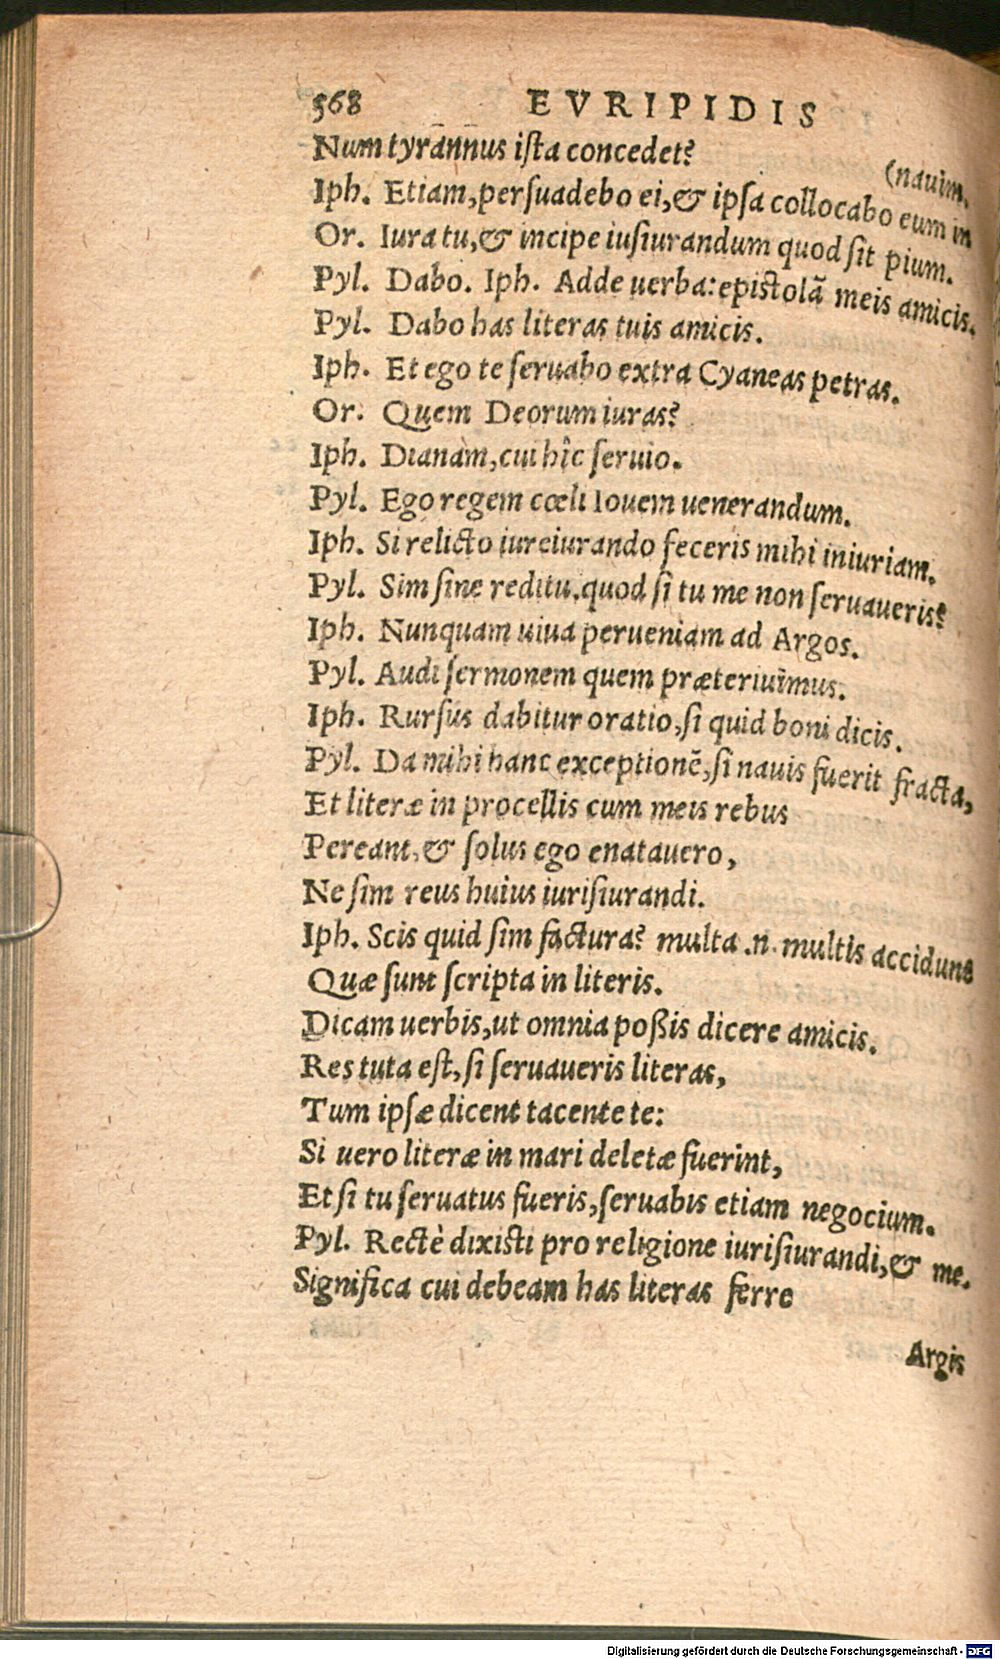 568 EVRIPIDIS
Num tyrannus ista concedet?
(nauim.
Iph. Etiam, persuadebo ei, & ipsa collocabo eum in
Or. Iura tu, & incipe iusiurandum quod sit pium.
Pyl. Dabo. Iph. Adde uerba: epistolã meis amicis.
Pyl. Dabo has literas tuis amicis.
Iph. Et ego te seruabo extra Cyaneas petras.
Or. Quem Deorum iuras?
Iph. Dianam, cui hîc seruio.
Pyl. Ego regem cœli Iouem uenerandum.
Iph. Si relicto iureiurando feceris mihi iniuriam.
Pyl. Sim sine reditu, quod si tu me non seruaueris?
Iph. Nunquam uiua perueniam ad Argos.
Pyl. Audi sermonem quem præteriuimus.
Iph. Rursus dabitur oratio, si quid boni dicis.
Pyl. Da mihi hanc exceptionẽ, si nauis fuerit fracta,
Et literæ in procellis cum meis rebus
Pereant, & solus ego enatauero,
Ne sim reus huius iurisiurandi.
Iph. Scis quid sim factura? multa .n. multis accidunt
Quæ sunt scripta in literis.
Dicam uerbis, ut omnia poßis dicere amicis.
Res tuta est, si seruaueris literas,
Tum ipsæ dicent tacente te:
Si uero literæ in mari deletæ fuerint,
Et si tu seruatus fueris, seruabis etiam negocium.
Pyl. Rectè dixisti pro religione iurisiurandi, & me.
Significa cui debeam has literas ferre
Argis
Digitalisierung gefördert durch die Deutsche Forschungsgemeinschaft - DFG